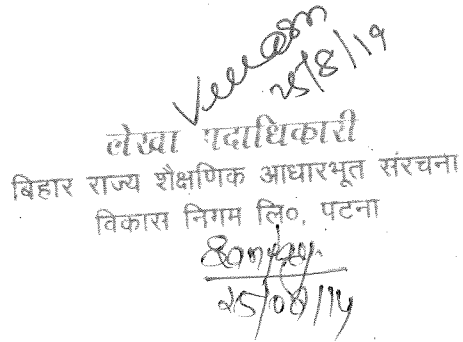 25/8/14
लेखा पदाधिकारी
बिहार राज्य शैक्षणिक आधारभूत संरचना
विकास निगम लि०, पटना
25/08/14